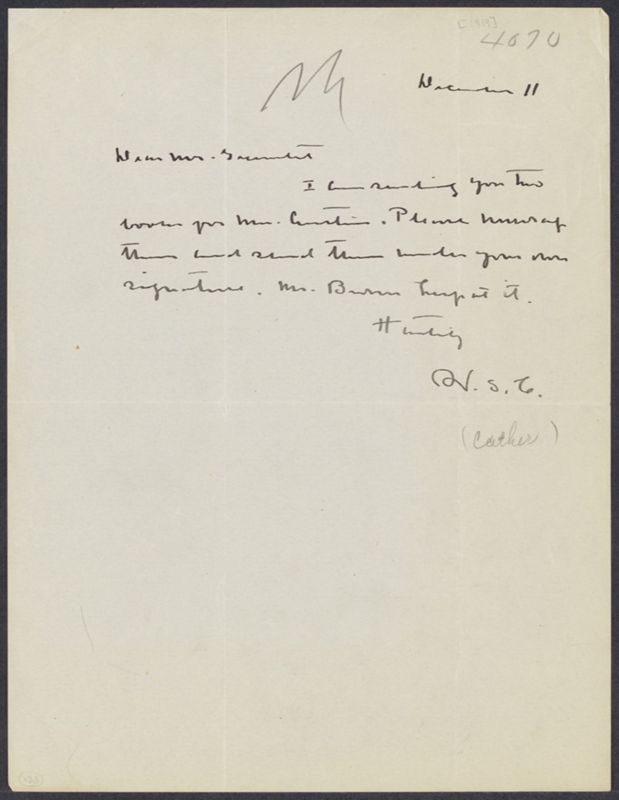 [1919]
4070
December 11
Dear Mr. Greenslet
I am sending you two
books for Mrs. Austin. Please unwrap
them and send them under your own
signature. Mr. Brown keep at it.
Heartily
W. S. C.
(Cather)